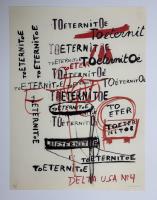 TOETERNITOE
TOETERNITOE
TOETERNITOE
TOETERNITOE
TOETERNITOE
TOETERNITOE
TOETERNITOE
TOETERNITOE
TOETERNITOE
TOETERNITOE
TO
ETER
TOETERNITOE
TOETER
NITOE
TOETERNITOE
TOETERNITOE
TOETERNITOE
DELTA USA Nº4